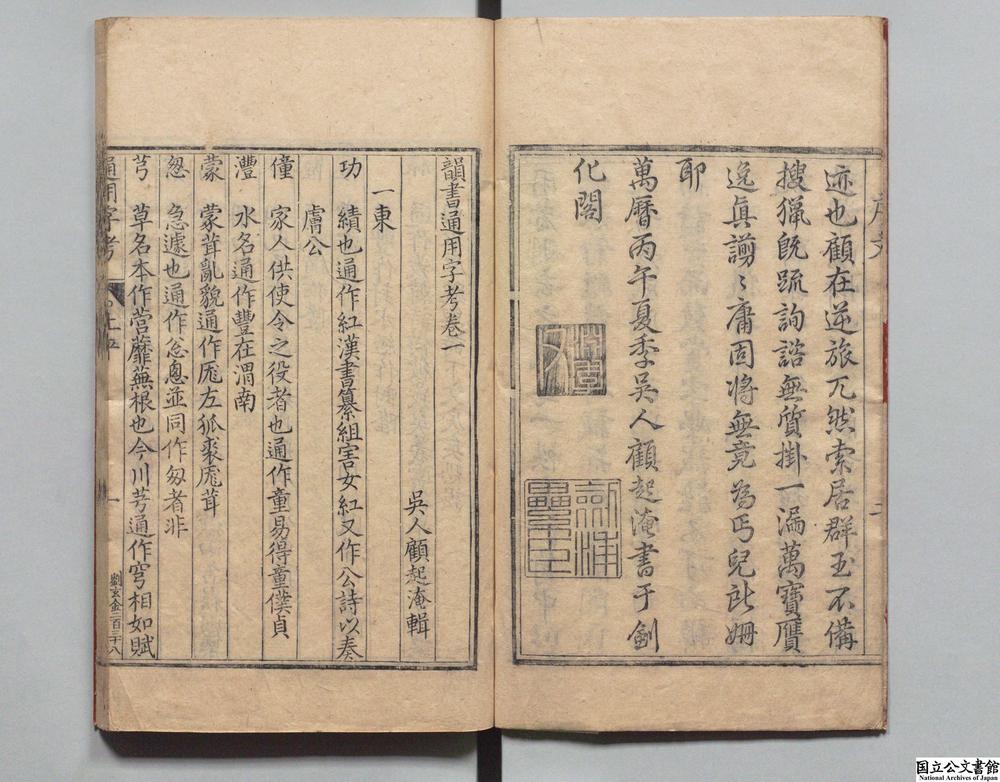 迹也顧在逆旅兀然索居群玉不備
搜獵既疏詢諮無質掛一漏萬寶贋
逸真謭〻庸固將無竟為丐兒訿姍
耶
萬曆丙午夏季吳人顧起淹書于劍
化閣
韻書通用字考卷一
吳人顧起淹輯
一東
功 績也通作紅漢書纂組害女紅又作公詩以奏
膚公
僮 家人供使令之役者也通作童易得童僕貞
灃 水名通作豐在渭南
蒙 蒙茸亂貌通作厖左狐裘厖茸
怱 急遽也通作忩悤並同作匆者非
芎 草名本作营蘼蕪根也今川芎通作穹相如賦
通用字考
一
劉玄金二百三十八
国立公文書館
National Archives of Japan